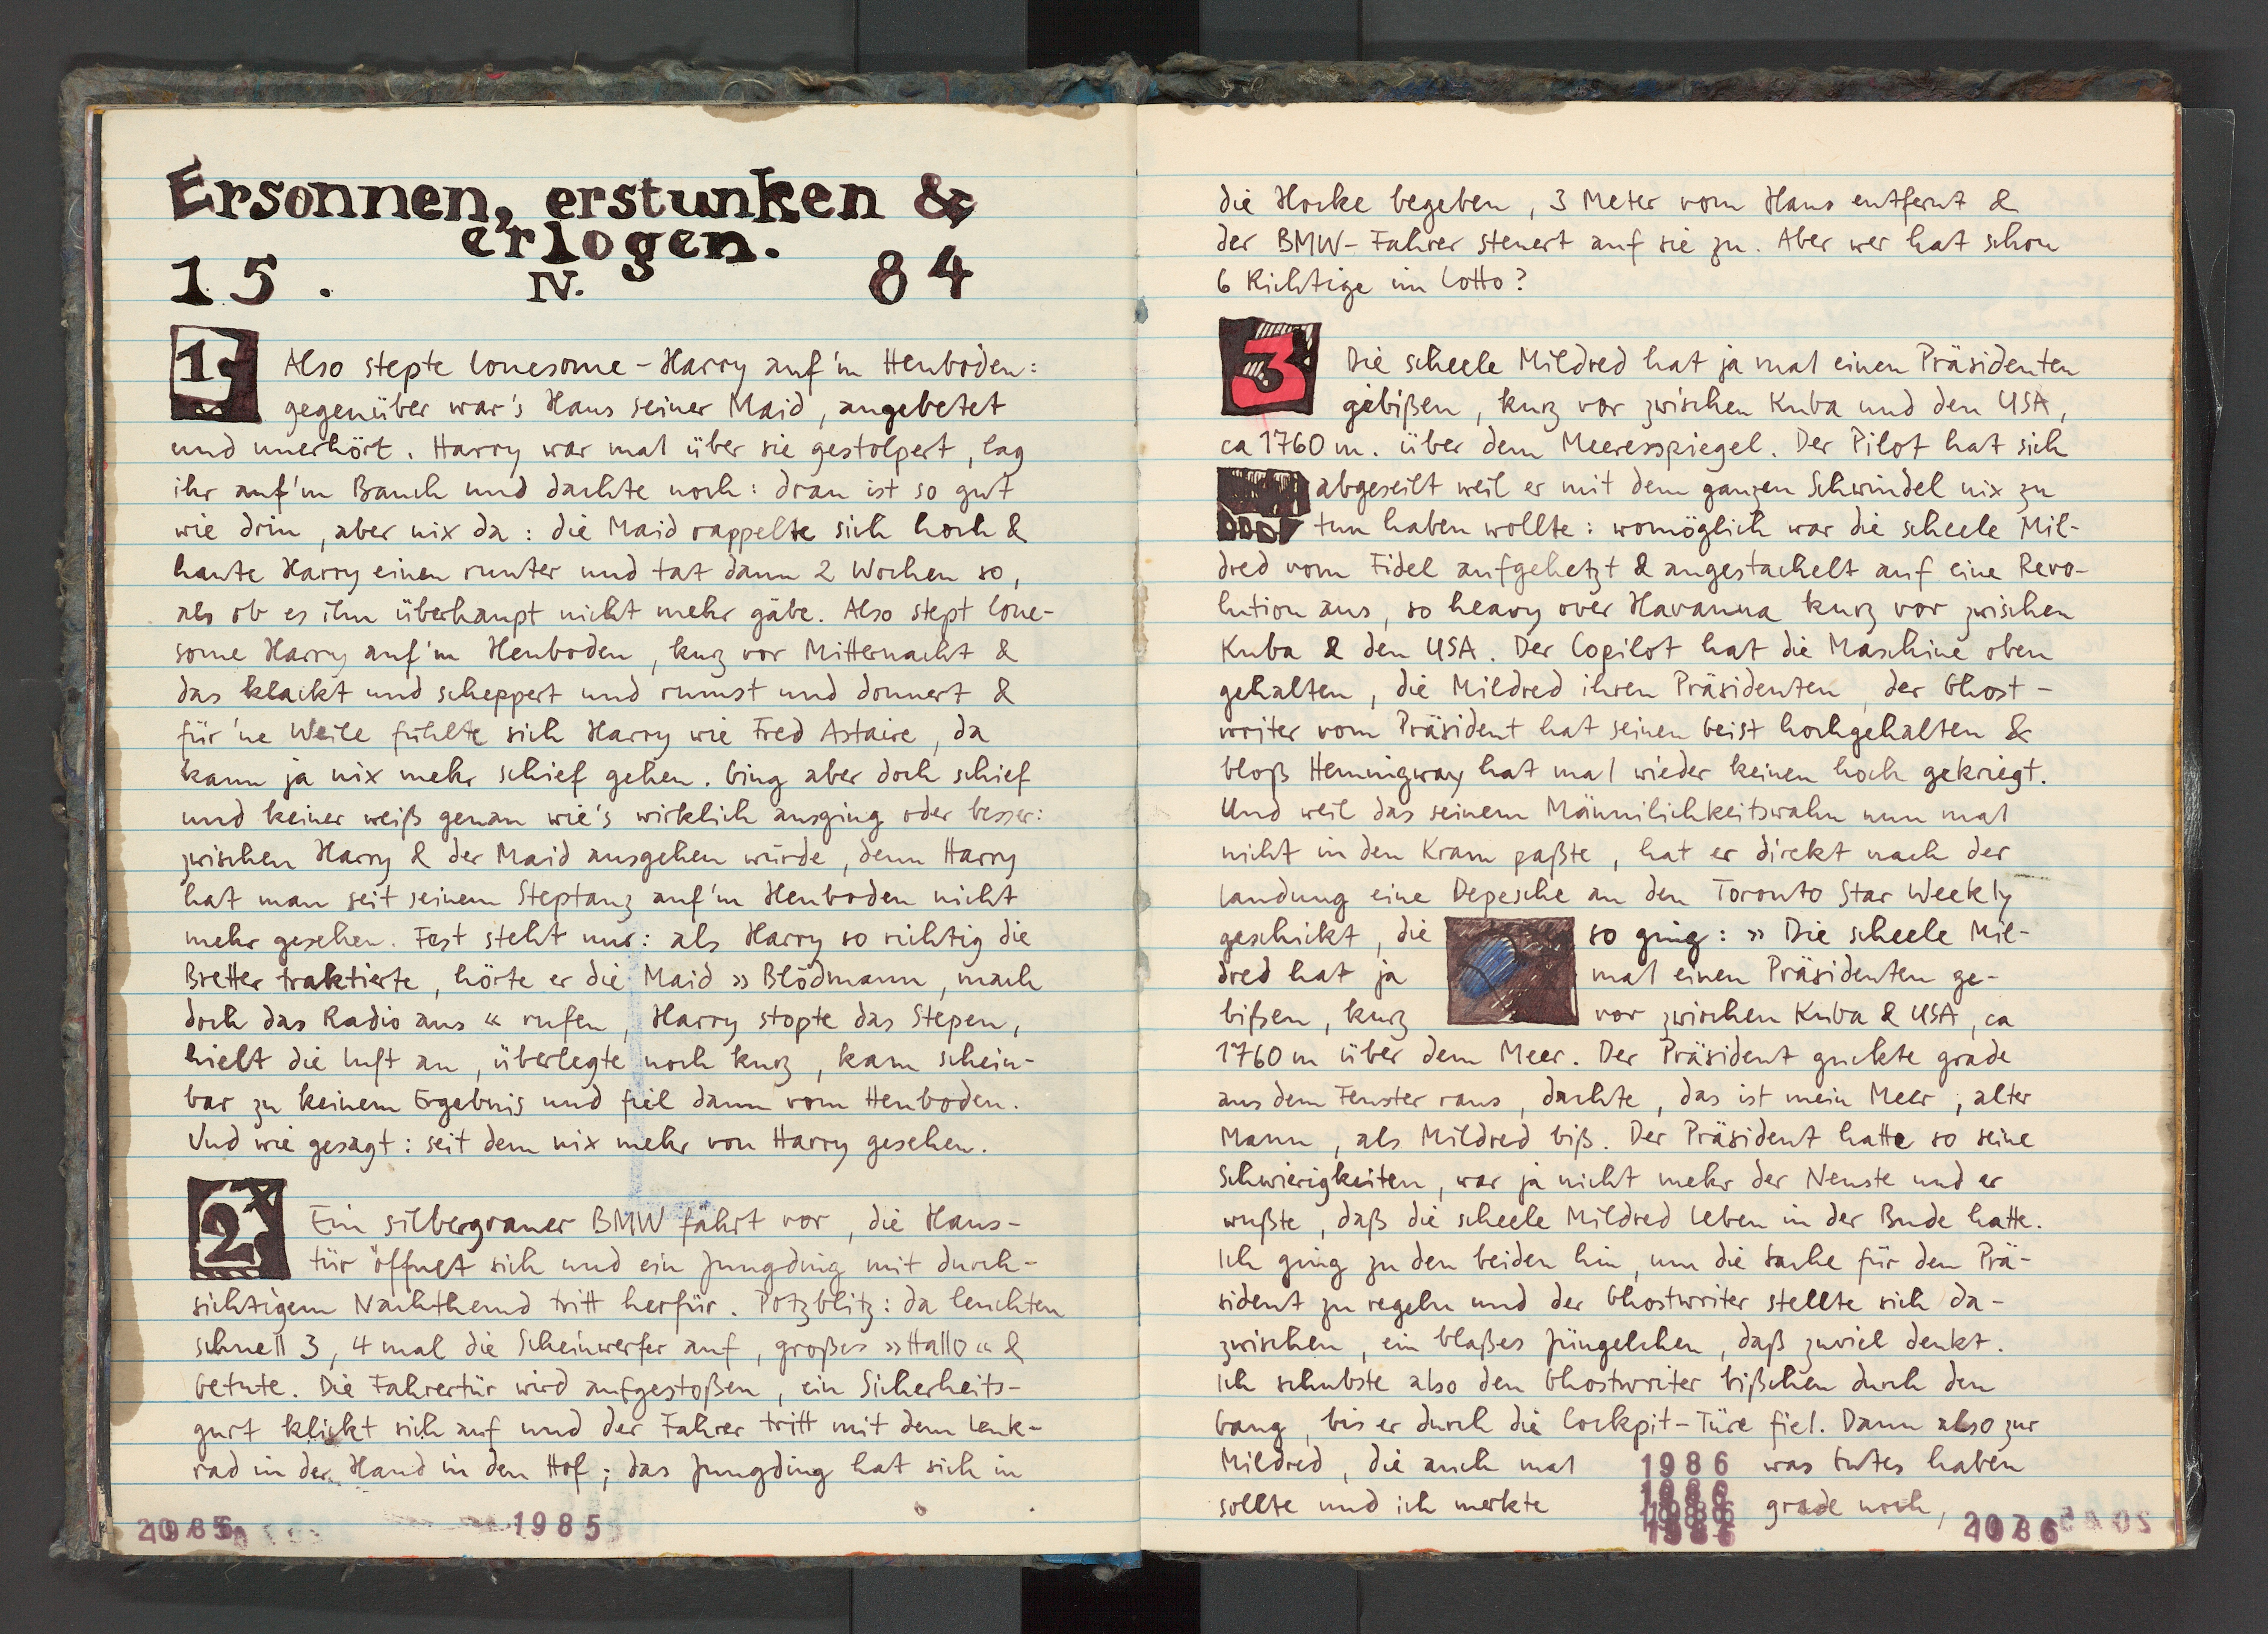 Ersonnen, erstunken &
erlogen.
15. IV. 84
1. Also stepte lonesome-Harry auf'm Heuboden:
gegenüber war's Haus seiner Maid, angebetet
und unerhört. Harry war mal über sie gestolpert, lag
ihr auf'm Bauch und dachte noch: dran ist so gut
wie drin, aber nix da: die Maid rappelte sich hoch &
haute Harry einen runter und tat dann 2 Wochen so,
als ob es ihn überhaupt nicht mehr gäbe. Also stept lone-
some Harry auf'm Heuboden, kurz vor Mitternacht &
das klackt und scheppert und rumst und donnert &
für 'ne Weile fühlte sich Harry wie Fred Astaire, da
kann ja nix mehr schief gehen. Ging aber doch schief
und keiner weiß genau wie's wirklich ausging oder besser:
zwischen Harry & der Maid ausgehen würde, denn Harry
hat man seit seinem Steptanz auf'm Heuboden nicht
mehr gesehen. Fest steht nur: als Harry so richtig die
Bretter traktierte, hörte er die Maid »Blödmann, mach
doch das Radio aus« rufen, Harry stopte das Stepen,
hielt die Luft an, überlegte noch kurz, kam schein-
bar zu keinem Ergebnis und fiel dann vom Heuboden.
Und wie gesagt: seit dem nix mehr von Harry gesehen.
2. Ein silbergrauer BMW fährt vor, die Haus-
tür öffnet sich und ein Jungding mit durch-
sichtigem Nachthemd tritt herfür. Potzblitz: da leuchten
schnell 3, 4 mal die Scheinwerfer auf, großes »Hallo« &
Getute. Die Fahrertür wird aufgestoßen, ein Sicherheits-
gurt klickt sich auf und der Fahrer tritt mit dem Lenk-
rad in der Hand in den Hof; das Jungding hat sich in
1985
die Hocke begeben, 3 Meter vom Haus entfernt &
der BMW-Fahrer steuert auf sie zu. Aber wer hat schon
6 Richtige im Lotto?
3. Die scheele Mildred hat ja mal einen Präsidenten
gebißen, kurz vor zwischen Kuba und den USA,
ca 1760 m. über dem Meeresspiegel. Der Pilot hat sich
abgeseilt weil er mit dem ganzen Schwindel nix zu
tun haben wollte: womöglich war die scheele Mil-
dred vom Fidel aufgehetzt & angestachelt auf eine Revo-
lution aus, so heavy over Havanna kurz vor zwischen
Kuba & den USA. Der Copilot hat die Maschine oben
gehalten, die Mildred ihren Präsidenten, der Ghost-
writer vom Präsident hat seinen Geist hochgehalten &
bloß Hemmigway hat mal wieder keinen hoch gekriegt.
Und weil das seinem Männilichkeitswahn nun mal
nicht in den Kram paßte, hat er direkt nach der
Landung eine Depesche an den Toronto Star Weekly
geschickt, die so ging: »Die scheele Mil-
dred hat ja mal einen Präsidenten ge-
bißen, kurz vor zwischen Kuba & USA, ca
1760 m über dem Meer. Der Präsident guckte grade
aus dem Fenster raus, dachte, das ist mein Meer, alter
Mann, als Mildred biß. Der Präsident hatte so seine
Schwierigkeiten, war ja nicht mehr der Neuste und er
wußte, daß die scheele Mildred Leben in der Bude hatte.
Ich ging zu den beiden hin, um die Sache für den Prä-
sident zu regeln und der Ghostwriter stellte sich da-
zwischen, ein blaßes Jüngelchen, daß zuviel denkt.
Ich schubste also den Ghostwriter bißchen durch den
Gang, bis er durch die Cockpit-Türe fiel. Dann also zur
Mildred, die auch mal 1986 was Gutes haben
sollte und ich merkte 1986 grade noch,
1986